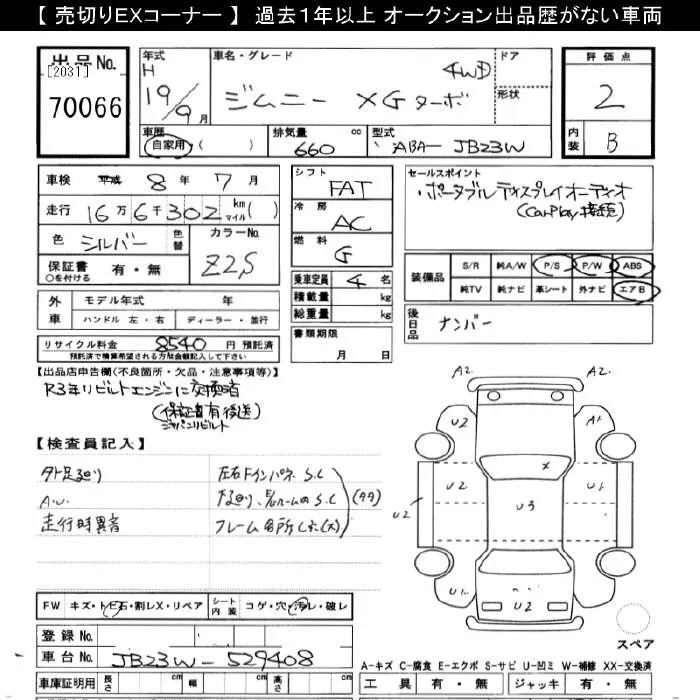 【 売切りEXコーナー 】 過去1年以上 オークション出品歴がない車両
出品No.
[2031]
70066
年式
H
19/9月
車名・グレード
ドア
4WD
ジムニー XGターボ
形状
評価点
2
内装
B
車歴
自家用・( )
排気量 cc
660
型式
ABA- JB23W
車検 平成 8 年 7 月
走行 16万6千302 km マイル ( )
色 シルバー 色替
カラーNo.
Z2S
保証書 有・無
○を付ける
シフト
FAT
冷房
AC
燃料
G
乗車定員 4 名
積載量 kg
総重量 kg
書類期限
月 日
セールスポイント
・ポータブルディスプレイオーディオ
(CarPlay接続)
装備品
S/R 純A/W P/S P/W ABS
純TV 純ナビ 革シート 外ナビ エアB
後日品
ナンバー
外車
モデル年式 年
ハンドル 左・右 ディーラー・並行
リサイクル料金 8540 円 預託済
預託済で積算希望される方は金額記入して下さい
【出品店申告欄(不良箇所・欠品・注意事項等)】
R3年リビルトエンジンに交換済
(保証書有後送)
ジャパンリビルト
【検査員記入】
外 足廻り
A.W.
走行時異音
左右Fインパネ S.C
下廻り、E/ルーム内 S.C
フレーム各所 (大)
A2 A2.
U2 A1
U2 U2 U3 U1 U2
U1 U2 U2
スペア
FW キズ・トビ石・割レX・リペア
シート内装 コゲ・穴・汚レ・破レ
登録No.
車台No. JB23W-529408
車庫証明用 長さ cm 幅 cm 高さ cm
A-キズ C-腐食 E-エクボ S-サビ U-凹ミ W-補修 XX-交換済
工具 有・無 ジャッキ 有・無